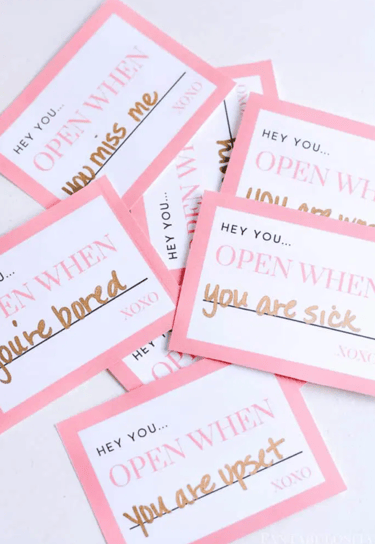 HEY YOU...
OPEN WHEN
you miss me
XOXO
HEY YOU...
OPEN WHEN
XOXO
HEY YOU...
OPEN WH
you are
OPEN WHEN
you're bored
XOXO
HEY YOU...
OPEN WHEN
you are sick
XOXO
HEY
HEY YOU...
OPEN WHEN
you are upset
XOXO